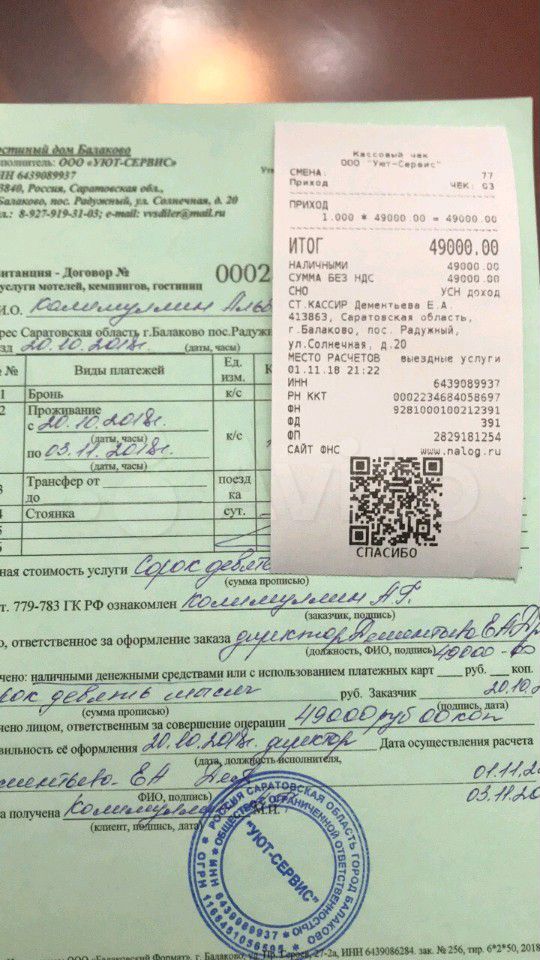 стиный дом Балаково
полнитель: ООО «УЮТ-СЕРВИС»
НН 6439089937
3840, Россия, Саратовская обл.,
Балаково, пос. Радужный, ул. Солнечная, д. 20
л.: 8-927-919-31-03; e-mail: vvsdiler@mail.ru
итанция - Договор № 0002
услуги мотелей, кемпингов, гостиниц
И.О. Калимуллин Альб
рес Саратовская область г.Балаково пос.Радужн
зд 20.10.2018г. (даты, часы)
№ Виды платежей Ед. изм. К
1 Бронь к/с
2 Проживание
с 20.10.2018г.
(даты, часы) к/с
по 03.11.2018г.
(даты, часы)
3 Трансфер от
до поезд ка
4 Стоянка сут.
5
6
ная стоимость услуги Сорок девять
(сумма прописью)
т. 779-783 ГК РФ ознакомлен Калимуллин А.Г.
(заказчик, подпись)
о, ответственное за оформление заказа директор Дементьева Е А
(должность, ФИО, подпись) 49000-00
чено: наличными денежными средствами или с использованием платежных карт руб. коп.
рок девять тысяч руб. Заказчик 20.10.2
(сумма прописью) (подпись, дата)
чено лицом, ответственным за совершение операции 49000 руб 00 коп
вильность её оформления 20.10.2018г. директор Дата осуществления расчета
(дата, должность исполнителя,
ементьева ЕА 01.11.20
ФИО, подпись) 03.11.20
а получена Калимулл М.П.
(клиент, подпись, дата)
РОССИЯ САРАТОВСКАЯ ОБЛАСТЬ ГОРОД БАЛАКОВО
ОБЩЕСТВО С ОГРАНИЧЕННОЙ ОТВЕТСТВЕННОСТЬЮ
"УЮТ-СЕРВИС"
ИНН 6439089937
ОГРН 1156451056595
ООО «Балаковский Формат», г. Балаково, ул. Пр. Героев, 27-2а, ИНН 6439086284. зак. № 256, тир. 6*2*50, 2018
Кассовый чек
ООО "Уют-Сервис"
СМЕНА: 77
Приход ЧЕК: 03
ПРИХОД
1.000 * 49000.00 = 49000.00
ИТОГ 49000.00
НАЛИЧНЫМИ 49000.00
СУММА БЕЗ НДС 49000.00
СНО УСН доход
СТ.КАССИР Дементьева Е.А.
413863, Саратовская область,
г.Балаково, пос. Радужный,
ул.Солнечная, д.20
МЕСТО РАСЧЕТОВ выездные услуги
01.11.18 21:22
ИНН 6439089937
РН ККТ 0002234684058697
ФН 9281000100212391
ФД 391
ФП 2829181254
САЙТ ФНС www.nalog.ru
СПАСИБО